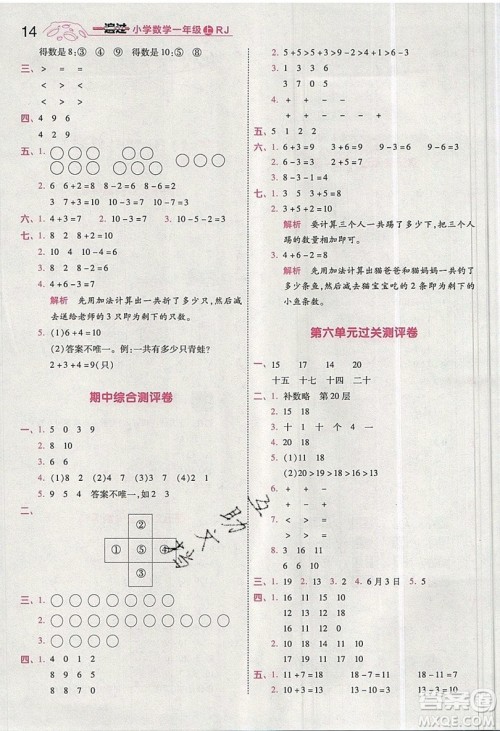 14 一遍过 小学数学一年级 上 RJ
得数是8:③ ④ ⑨
三、 > < =
< > >
> < =
四、4 9 6
4 4 0
五、1.
2. 6+2=8 8-2=6 8-6=2
六、1. 4+3=7 2. 10-3=7 3. 9-6=3
七、1. 0 8 8+2=10
2. 10 4 10-4=6
3. 4+5=9 9-3=6
解析 先用加法计算出一共折了多少只,然后减
去送给老师的3只就可算出剩下的只数。
4. (1)6 5
(2)答案不唯一。例:一共有多少只青蛙?
2+7=9(只)
期中综合测评卷
一、1. 5 0 3 9
2. 6 8 10
3. (1)8 2 (2)4 (3)7 1 (4)2
4. 9 5 答案不唯一,如2 3
二、
②
① ⑤ ④
③
三、1.
2.
3.
四、1. 4 0 1 2
8 9 6 5
2. 8 9 7 0
8 9 6 5
2. 5>3+1>3>2>1>0
3. 7 3 9 2 6 2 4 8
4. + - + -
+ - - -
五、5 1 2 2
六、1. 6+3=9 3+6=9 9-3=6 9-6=3
2. 8-3=5
3. 4+3=7
4. 9-3=6
七、1. 3 3 3+5=8
2. 3+2+5=10
解析 要计算三个人一共踢了多少下,把三个人
踢的数量相加即可。
3. 4+3-2=5
解析 先用加法计算出猫爸爸和猫妈妈一共钓了
多少条鱼,然后减去猫宝宝吃的2条即可算出剩下的
小鱼条数。
第六单元过关测评卷
一、15 17 14 20
十五 十七 十四 二十
二、1. 补数略 第20层
2. 15 18
3. 十 1 十 个 4 一
4. 20 19
5. (1)18 11
(2)20>18>16>13>11>7
6. + - + -
+ - + -
7. < > < =
= > > <
8. 3 6 11 10
三、1. 19 2. 13 3. 20 4. 6月3日 5. 5
四、1. 16 10 18 19
10 18 11 10
2. 16 18 14 11
17 10 10 16
五、1. 11+7=18 18-7=11 18-11=7
2. 10+3=13 13-10=3 13-3=10
互助文摘
答案圈
MXQE.COM